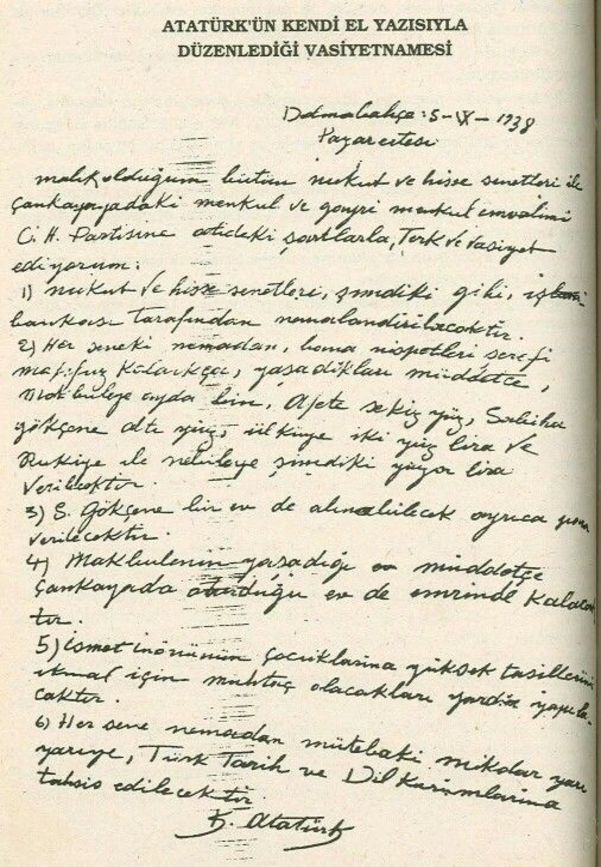 ATATÜRK'ÜN KENDİ EL YAZISIYLA
DÜZENLEDİĞİ VASİYETNAMESİ
Dolmabahçe: 5-IX-1938
Pazarertesi
malik olduğum bütün nukut ve hisse senetleri ile
Çankayadaki menkul ve gayri menkul emvalimi
C. H. Partisine atideki şartlarla, terk ve vasiyet
ediyorum:
1) nukut ve hisse senetleri, şimdiki gibi, iş
bankası tarafından nemalandırılacaktır.
2) Her seneki nemadan, bana nispetleri şerefi
mahfuz kaldıkça, yaşadıkları müddetçe,
Makbuleye ayda bin, Afete sekiz yüz, Sabiha
gökçene altı yüz, ülküye iki yüz lira ve
Rukiye ile nebileye şimdiki yüzer lira
verilecektir.
3) S. Gökçene bir ev de alınabilecek ayrıca para
verilecektir.
4) Makbulenin yaşadığı müddetçe
Çankayada oturduğu ev de emrinde kalacak
tır.
5) ismet inönünün çocuklarına yüksek tahsillerini
ikmal için muhtaç olacakları yardım yapıla-
caktır.
6) Her sene nemadan mütebaki mikdar yarı
yarıye, Türk Tarih ve Dil Kurumlarına
tahsis edilecektir.
K. Atatürk